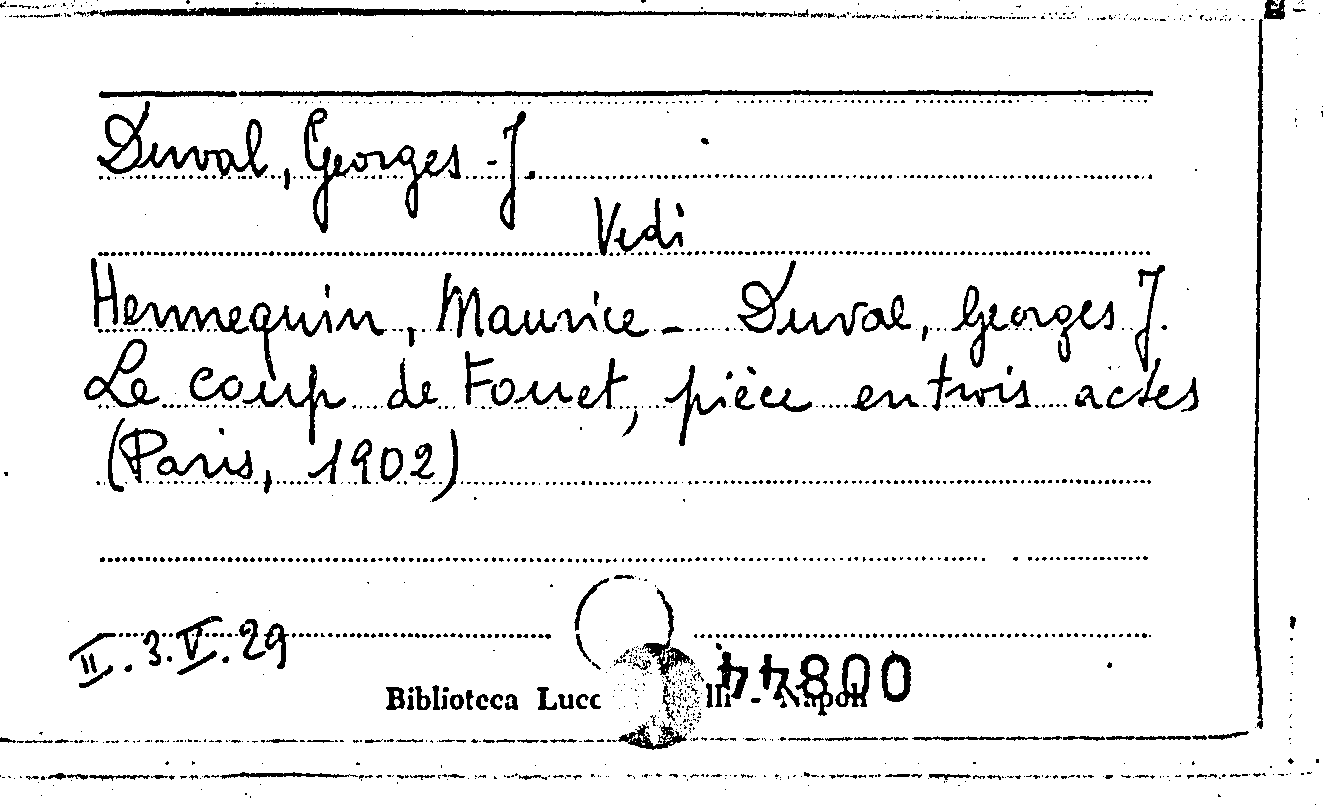 Duval, Georges-J.
Vedi
Hennequin, Maurice - Duval, Georges J.
Le coup de Fouet, pièce en trois actes
(Paris, 1902)
II.3.V.29
Biblioteca - Napoli